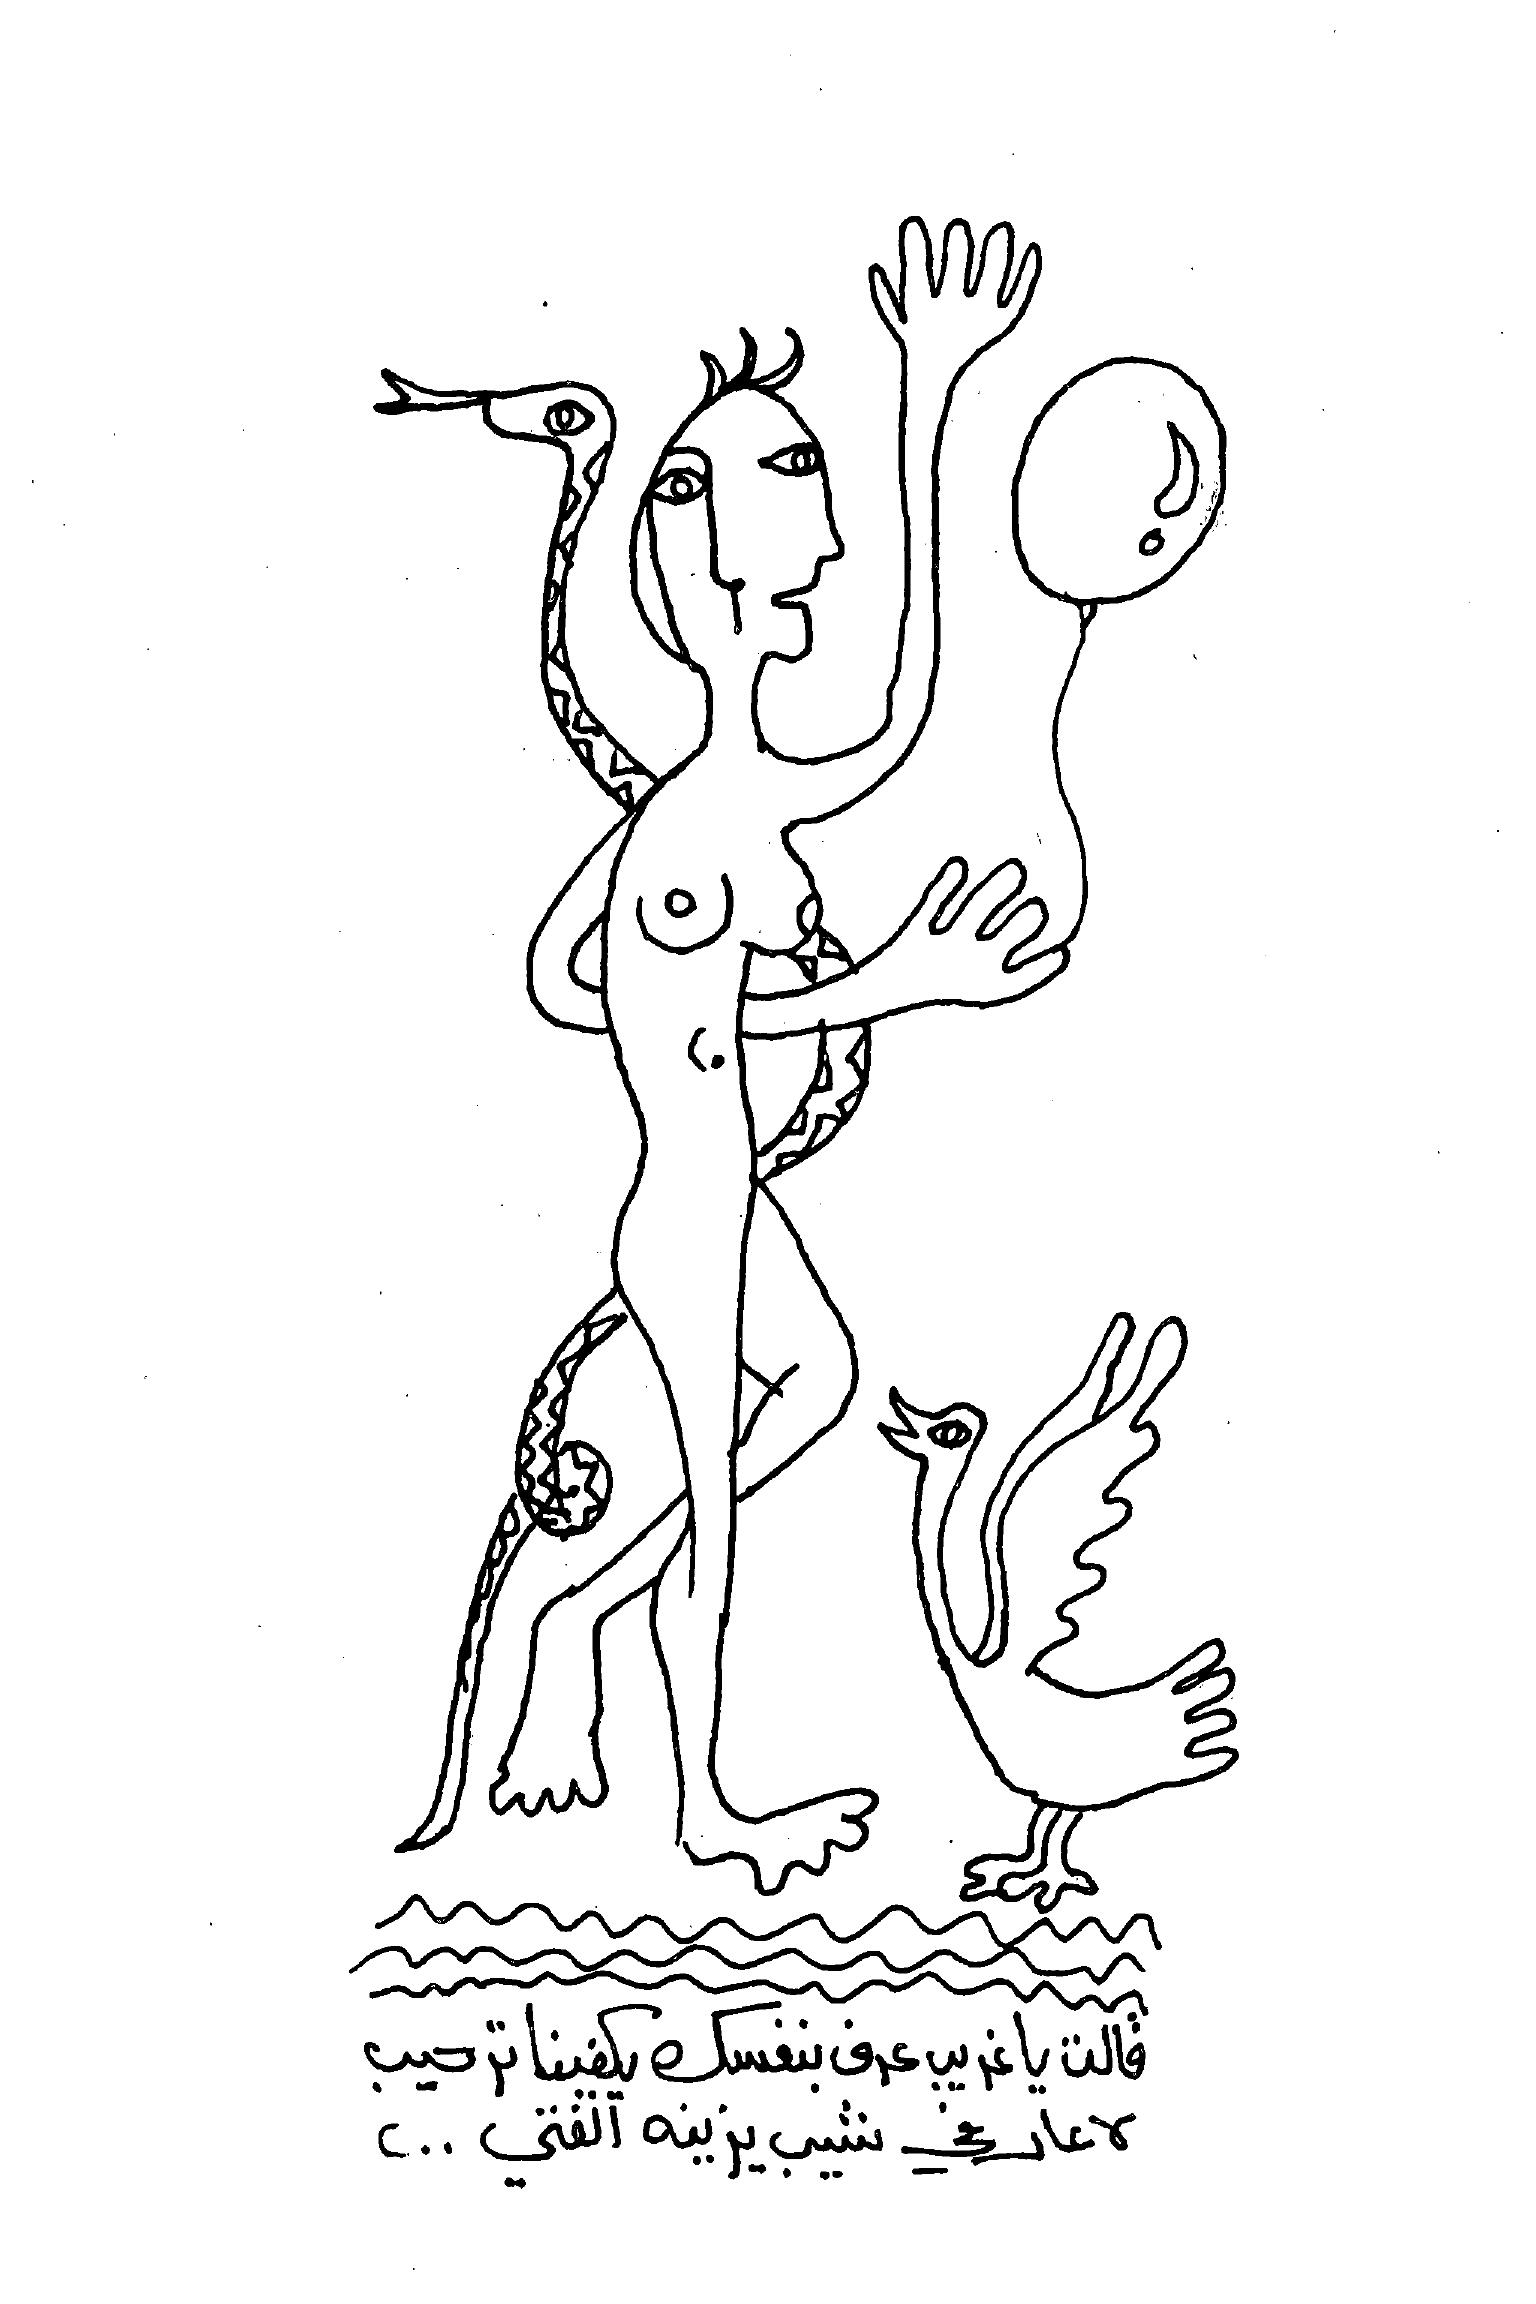 قالت يا غريب عرف بنفسك يكفينا ترحيب
لا عار في شيب يزينه الفتي ..